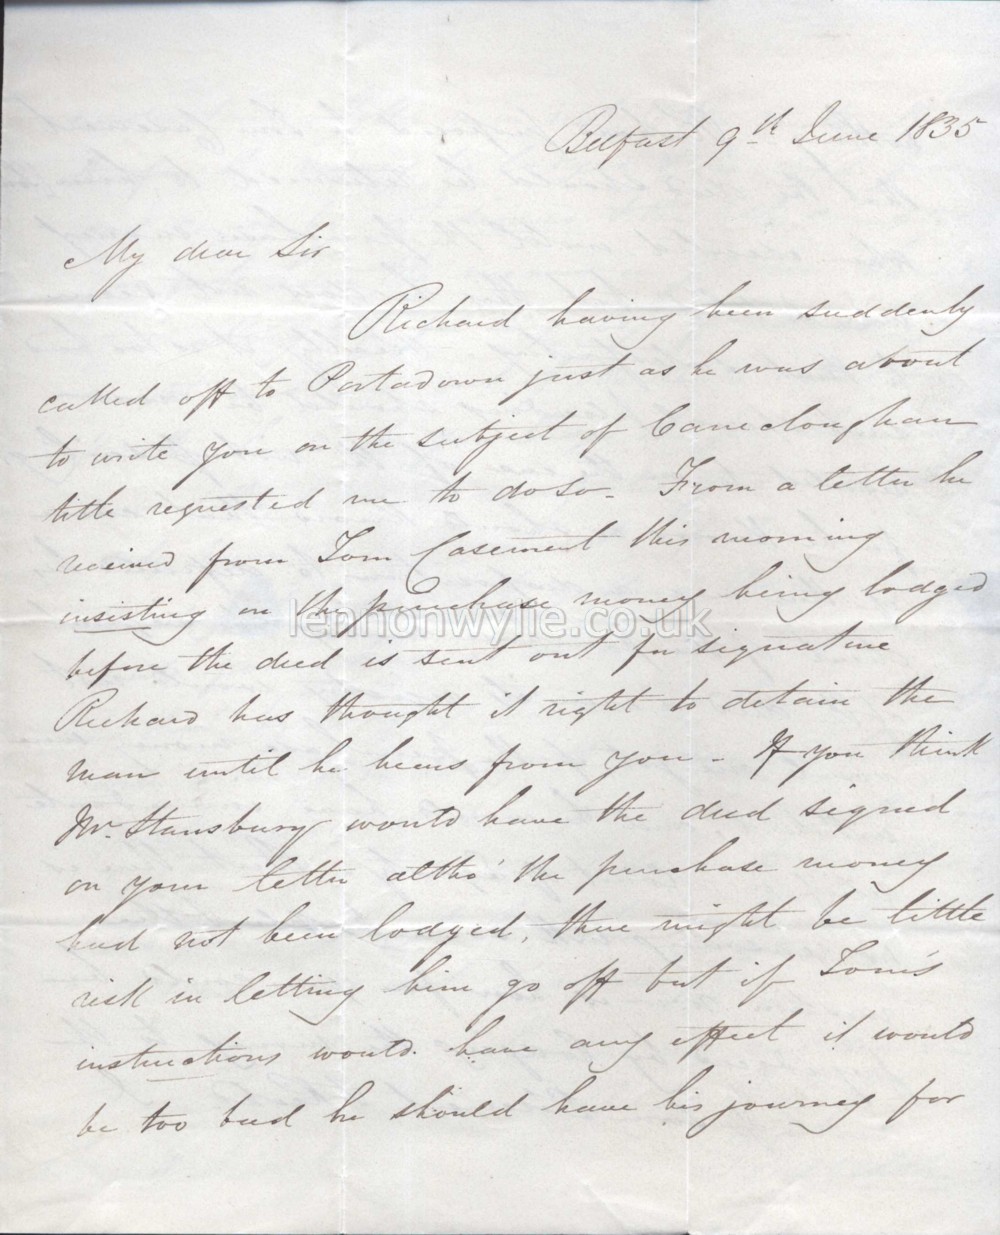 Belfast 9th June 1835
My dear Sir
Richard having been suddenly
called off to Portadown just as he was about
to write you on the subject of Carncloughan
title requested me to do so - From a letter he
received from Tom Casement this morning
insisting on the purchase money being lodged
before the deed is sent out for signature
Richard has thought it right to detain the
man until he hears from you - If you think
Mr. Stansbury would have the deed signed
on your letter altho' the purchase money
had not been lodged, there might be little
risk in letting him go off but if Tom's
instructions would have any effect it would
be too bad he should have his journey for
lennonwylie.co.uk